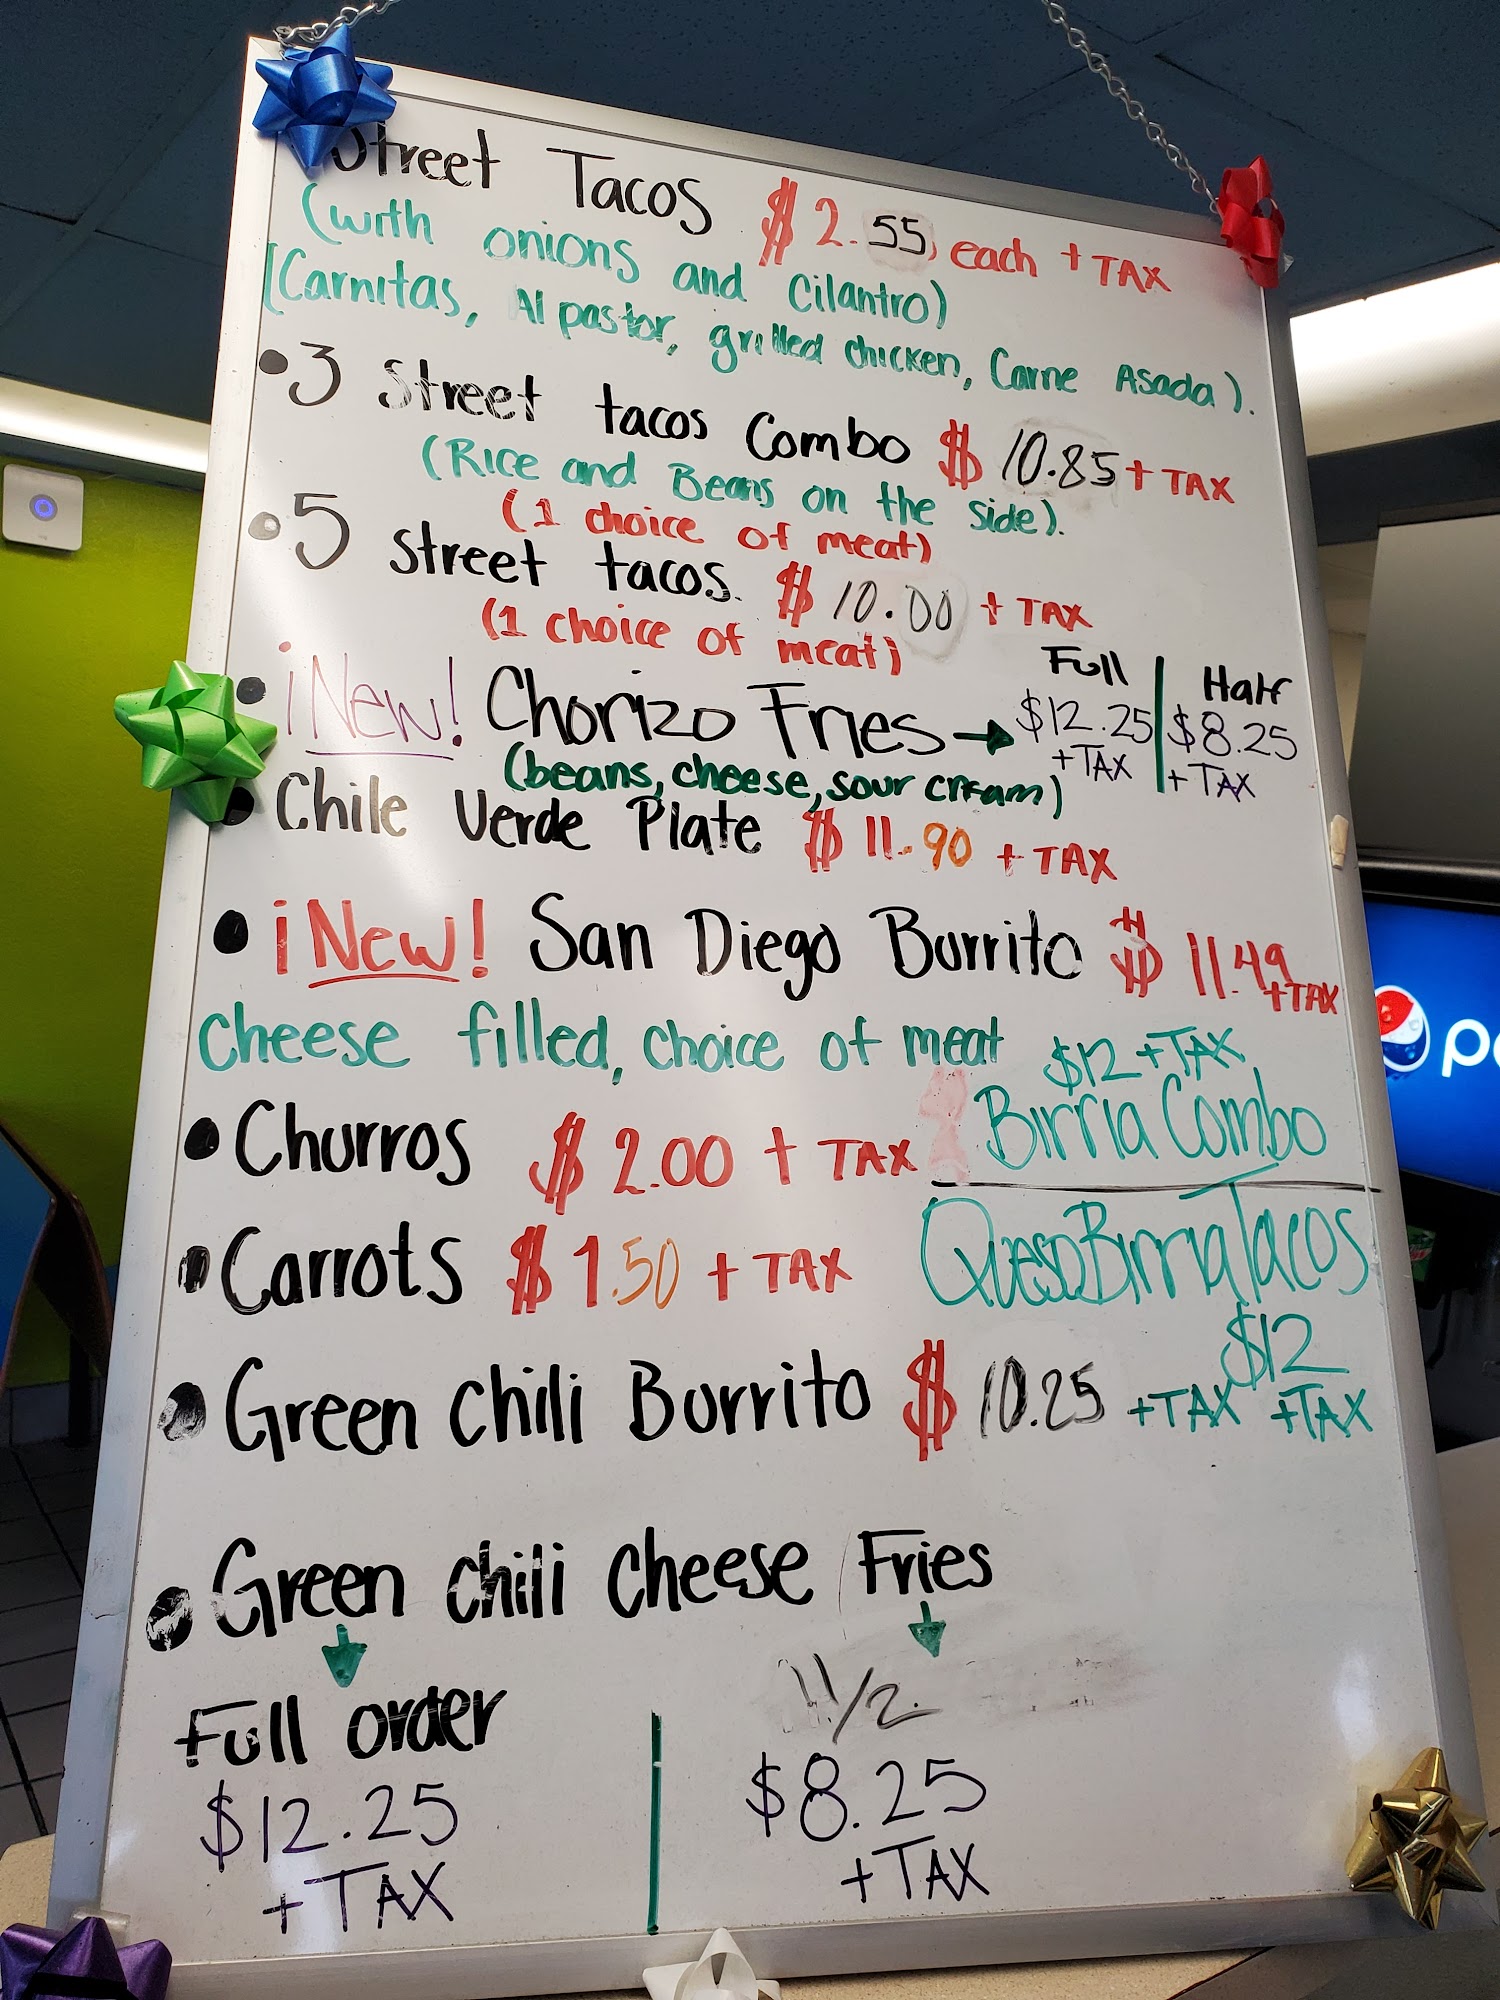 Street Tacos $2.55 each + TAX
(with onions and Cilantro)
(Carnitas, Al pastor, grilled chicken, Carne Asada).
• 3 Street tacos Combo $10.85 + TAX
(Rice and Beans on the side).
(1 choice of meat)
• 5 street tacos. $10.00 + TAX
(1 choice of meat)
• ¡New! Chorizo Fries → Full $12.25 + TAX | Half $8.25 + TAX
(beans, cheese, sour cream)
• Chile Verde Plate $11.90 + TAX
• ¡New! San Diego Burrito $11.49 +TAX
cheese filled, choice of meat
$12 +TAX
Birria Combo
• Churros $2.00 + TAX
QuesoBirriaTacos
$12
+TAX
• Carrots $1.50 + TAX
• Green chili Burrito $10.25 +TAX
• Green chili cheese Fries
Full order
$12.25
+ TAX
1/2.
$8.25
+ TAX
pe